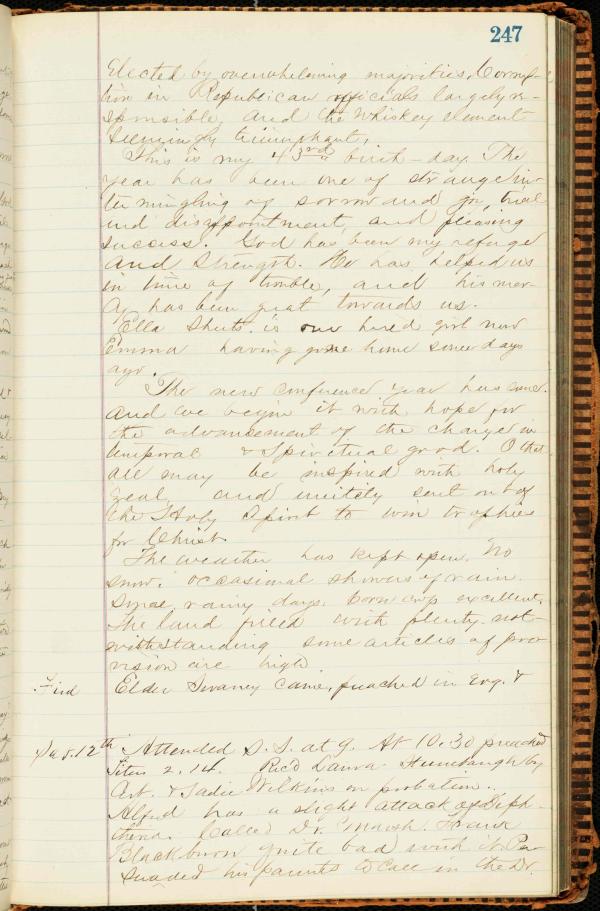 247
Elected by overwhelming majorities, Corrup-
tion in Republican officials largely re-
sponsible, and the Whiskey element
seemingly triumphant.
This is my 43rd birth-day. The
year has been one of strange in-
termingling of sorrow and joy, trial
and disappointment, and pleasing
success. God has been my refuge
and Strength. He has helped us
in time of trouble, and his mer-
cy has been great towards us.
Ella Sheets is our hired girl now
Emma having gone home some days
ago.
The new conference year has come
and we begin it with hope for
the advancement of the charge in
temporal & Spiritual good. O that
all may be inspired with holy
zeal, and unitedly sent out of
the Holy Spirit to win trophies
for Christ.
The weather has kept open. No
snow. occasional showers of rain.
Some rainy days. Corn crop excellent.
The land filled with plenty not-
withstanding some articles of pro-
vision are high.
Elder Swaney came, preached in Evg. &
12th Attended S. S. at 9. At 10.30 preached
Titus 2.14. Rec'd Laura by
Cert. & Sadie Wilkins on probation.
Alfred has a slight attack of Diph-
theria. Called Dr. Marsh. Frank
Blackburn quite bad with it. Per-
suaded his parents to call in the Dr.